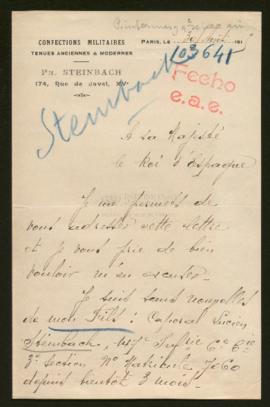 CONFECTIONS MILITAIRES
TENUES ANCIENNES & MODERNES
PH. STEINBACH
174, Rue de Javel, XV
PARIS, LE
191
103641
Fecho
e.a.e.
Steinbach
A sa Majesté
le Roi d'Espagne
Je me permets de
vous adresser cette lettre
et je vous prie de bien
vouloir m'en excuser.
Je suis sans nouvelles
de mon Fils : Caporal Lucien
Steinbach, Infrie 6e Cie
3e Section No Matricule 7060
depuis bientôt 3 mois.